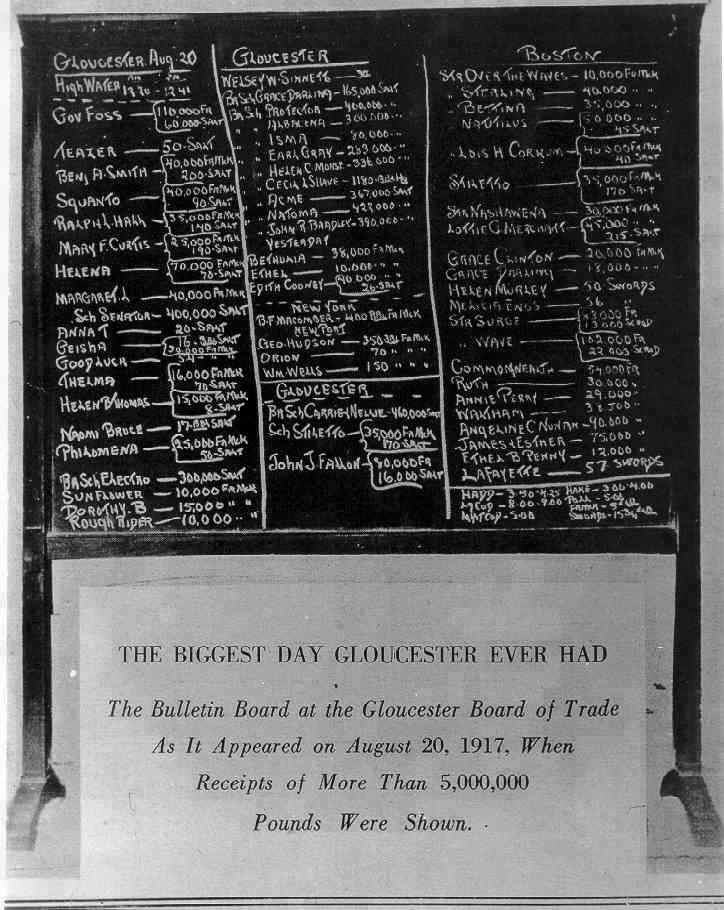 GLOUCESTER AUG 20
HIGH WATER
GOV FOSS — 110,000 FR
60,000 SALT
TEAZER — 50 SALT
BENJ A. SMITH — 40,000 FR MCK
200 SALT
SQUANTO — 40,000 FR MCK
90 SALT
RALPH L. HALL — 35,000 FR MCK
140 SALT
MARY F. CURTIS — 25,000 FR MCK
190 SALT
HELENA — 70,000 FR MCK
70 SALT
MARGARET L — 40,000 FR MCK
SCH SENATOR — 400,000 SALT
ANNA T — 20 SALT
GEISHA
GOOD LUCK
THELMA — 16,000 FR MCK
70 SALT
HELEN B THOMAS — 15,000 FR MCK
8 SALT
NAOMI BRUCE — 17 SALT
PHILOMENA — 25,000 FR MCK
50 SALT
BR SCH ELECTRO — 300,000 SALT
SUNFLOWER — 10,000 FR MCK
DOROTHY B — 15000 " "
ROUGH RIDER — 10,000 " "
GLOUCESTER
WELSEY W. SINNETT —
BR SCH GRACE DARLING — 165,000 SALT
BR SCH PROTECTOR — 400,000 " "
" " ALBACENA — 300,000 " "
" " ISMA — 80,000 " "
" " EARL GRAY — 203,000 " "
" " HELEN C MORSE — 336,000 " "
" " CECIL L
" " ACME — 367,000 SALT
" " NATOMA — 423,000 "
" " JOHN R BRADLEY — 390,000 " "
YESTERDAY
BETHULIA — 38,000 FR MCK
ETHEL — 10,000 " "
EDITH COONEY — 40,000 " "
26 SALT
NEW YORK
B.F. MACOMBER — 400 BBL FR MCK
NEWPORT
GEO. HUDSON — 350 BBL FR MCK
ORION — 70 " " "
WM WELLS — 150 " " "
GLOUCESTER
BR SCH CARRIE + NELLIE — 460,000 SALT
SCH STILETTO — 35,000 FR MCK
170 SALT
JOHN J FALLON — 40,000 FR
16,000 SALT
BOSTON
STR OVER THE WAVES — 10,000 FR MCK
" STERLING — 40,000 " "
" BETTINA — 35,000 " "
" NAUTILUS — 50,000 " "
45 SALT
" LOIS H CORKUM — 40,000 FR MCK
40 SALT
STILETTO — 35,000 FR MCK
170 SALT
STR NASHAWENA — 30,000 FR MCK
LOTTIE G. MERCHANT — 45,000 " "
215 SALT
GRACE CLINTON — 20,000 FR MCK
GRACE DARLING — 18,000 " "
HELEN MURLEY — 50 SWORDS
36 "
STR SURGE — 43000 FR
13000 SCROD
" WAVE — 102,000 FR
22000 SCROD
COMMONWEALTH — 54,000 FR
RUTH — 30,000 "
ANNIE PERRY — 29,000 "
WALTHAM — 38,500 "
ANGELINE C NUNAN — 40,000 "
JAMES + ESTHER — 75,000 "
ETHEL B PENNY — 12,000 "
LAFAYETTE — 57 SWORDS
HADD — 3.50 4.25 HAKE — 3.00 4.00
L/COD — 8.00 9.00 POLL — 5.00
M/KT COD — 5.00
THE BIGGEST DAY GLOUCESTER EVER HAD
The Bulletin Board at the Gloucester Board of Trade
As It Appeared on August 20, 1917, When
Receipts of More Than 5,000,000
Pounds Were Shown.